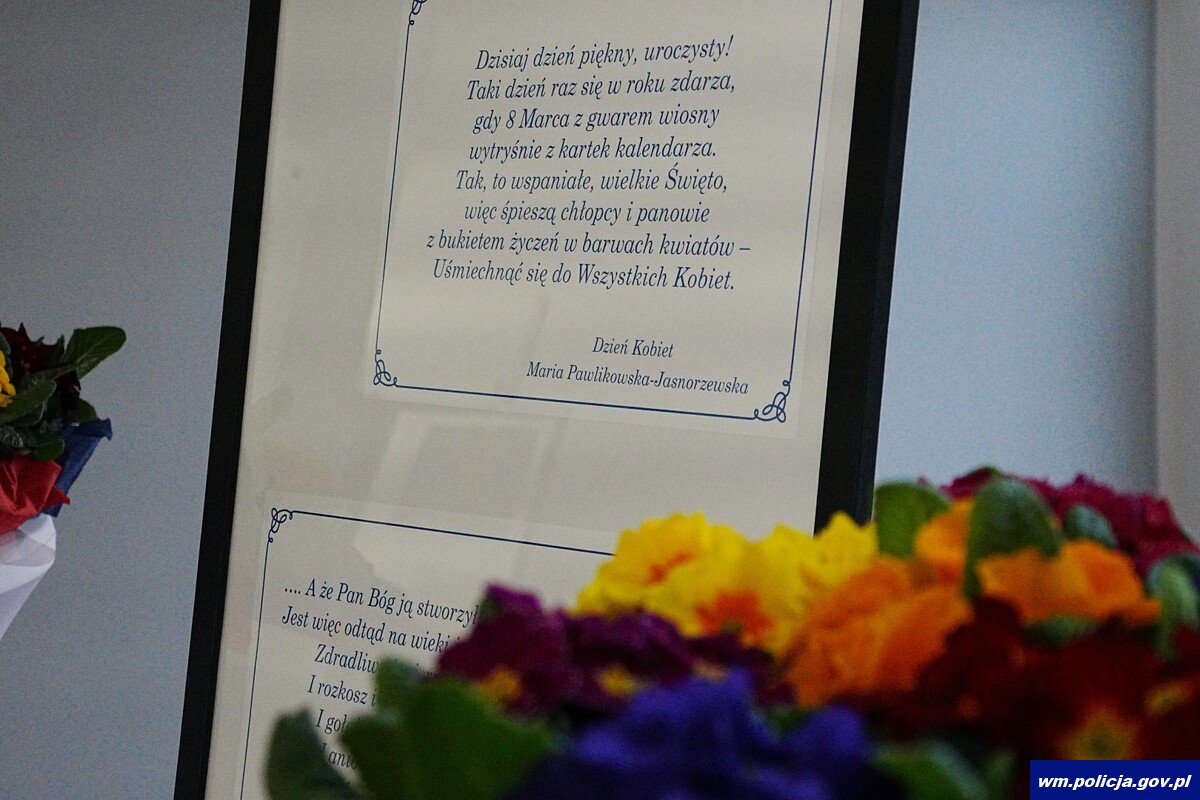 Dzisiaj dzień piękny, uroczysty!
Taki dzień raz się w roku zdarza,
gdy 8 Marca z gwarem wiosny
wytryśnie z kartek kalendarza.
Tak, to wspaniałe, wielkie Święto,
więc śpieszą chłopcy i panowie
z bukietem życzeń w barwach kwiatów –
Uśmiechnąć się do Wszystkich Kobiet.
Dzień Kobiet
Maria Pawlikowska-Jasnorzewska
.... A że Pan Bóg ją stworzył
Jest więc odtąd na wieki
I rozkosz
wm.policja.gov.pl